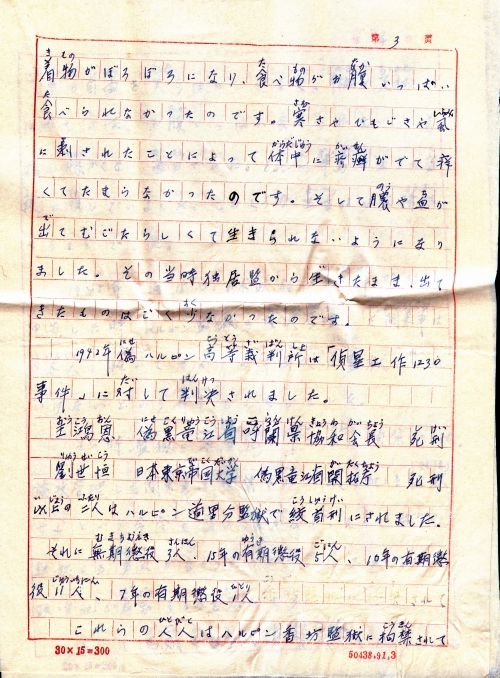 第 3 頁
着物がぼろぼろになり、食べ物が腹いっぱい
食べられなかったのです。寒さやひもじさや風
に刺されたことによって体中に疥癬がでて痒
くてたまらなかったのです。そして膿や血が
出てむごたらしくて生きられないようになり
ました。その当時独居監から生きたまま、出て
きたものはごく少なかったのです。
1942年偽ハルピン高等裁判所は「偵星工作1230
事件」に対して判決されました。
王鴻恩 偽黒竜江省 県協和会長 死刑
劉世垣 日本東京帝国大学 偽黒竜江省開拓庁 死刑
以上の二人はハルピン道里分監獄で絞首刑にされました。
それに無期懲役3人、15年の有期懲役5人、10年の有期懲
役11人、7年の有期懲役1人
これらの人人はハルピン香坊監獄に拘禁されて
30×15=300 50438.91.3